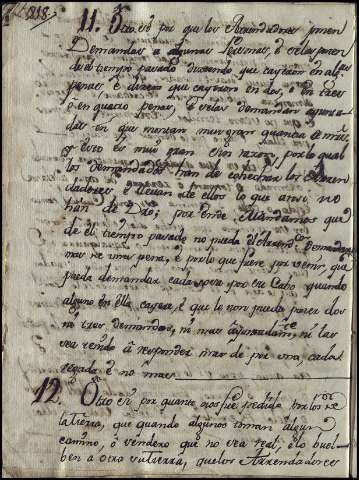 218.
11. Otro sí: por que los Arrendadores ponen
Demandas a algunas Personas, é veles ponen
del tiempo pasado diziendo que cayeron en las
penas, é dizen que cayeron en dos, ó en tres
ó en quatro penas, é velas demandan
en que montan muy gran quantia de mrs.
y esto es muy gran sin razon, por lo qual
los demandados han de los Arren
dadores é llevan de ellos lo que ansi no
han de Dro; por ende Mandamos que
de el tiempo pasado no pueda el Arrendador demandar
mas de una pena, é por lo que fuere por venir, que
pueda demandar cada pena por su Cabo quando
alguno en ella cayere, é que le non pueda poner dos
ni tres demandas, ni mas ayuntadamte. ni las
vea tenudo á responder mas de por una, cada
vegada é no mas
12. Otro sí por quanto nos fue pedido por los de
la tierra, que quando algunos toman algun
camino, ó vendero que no vea real, é lo buel-
ben a otra vu tierra, que los Arrendadores